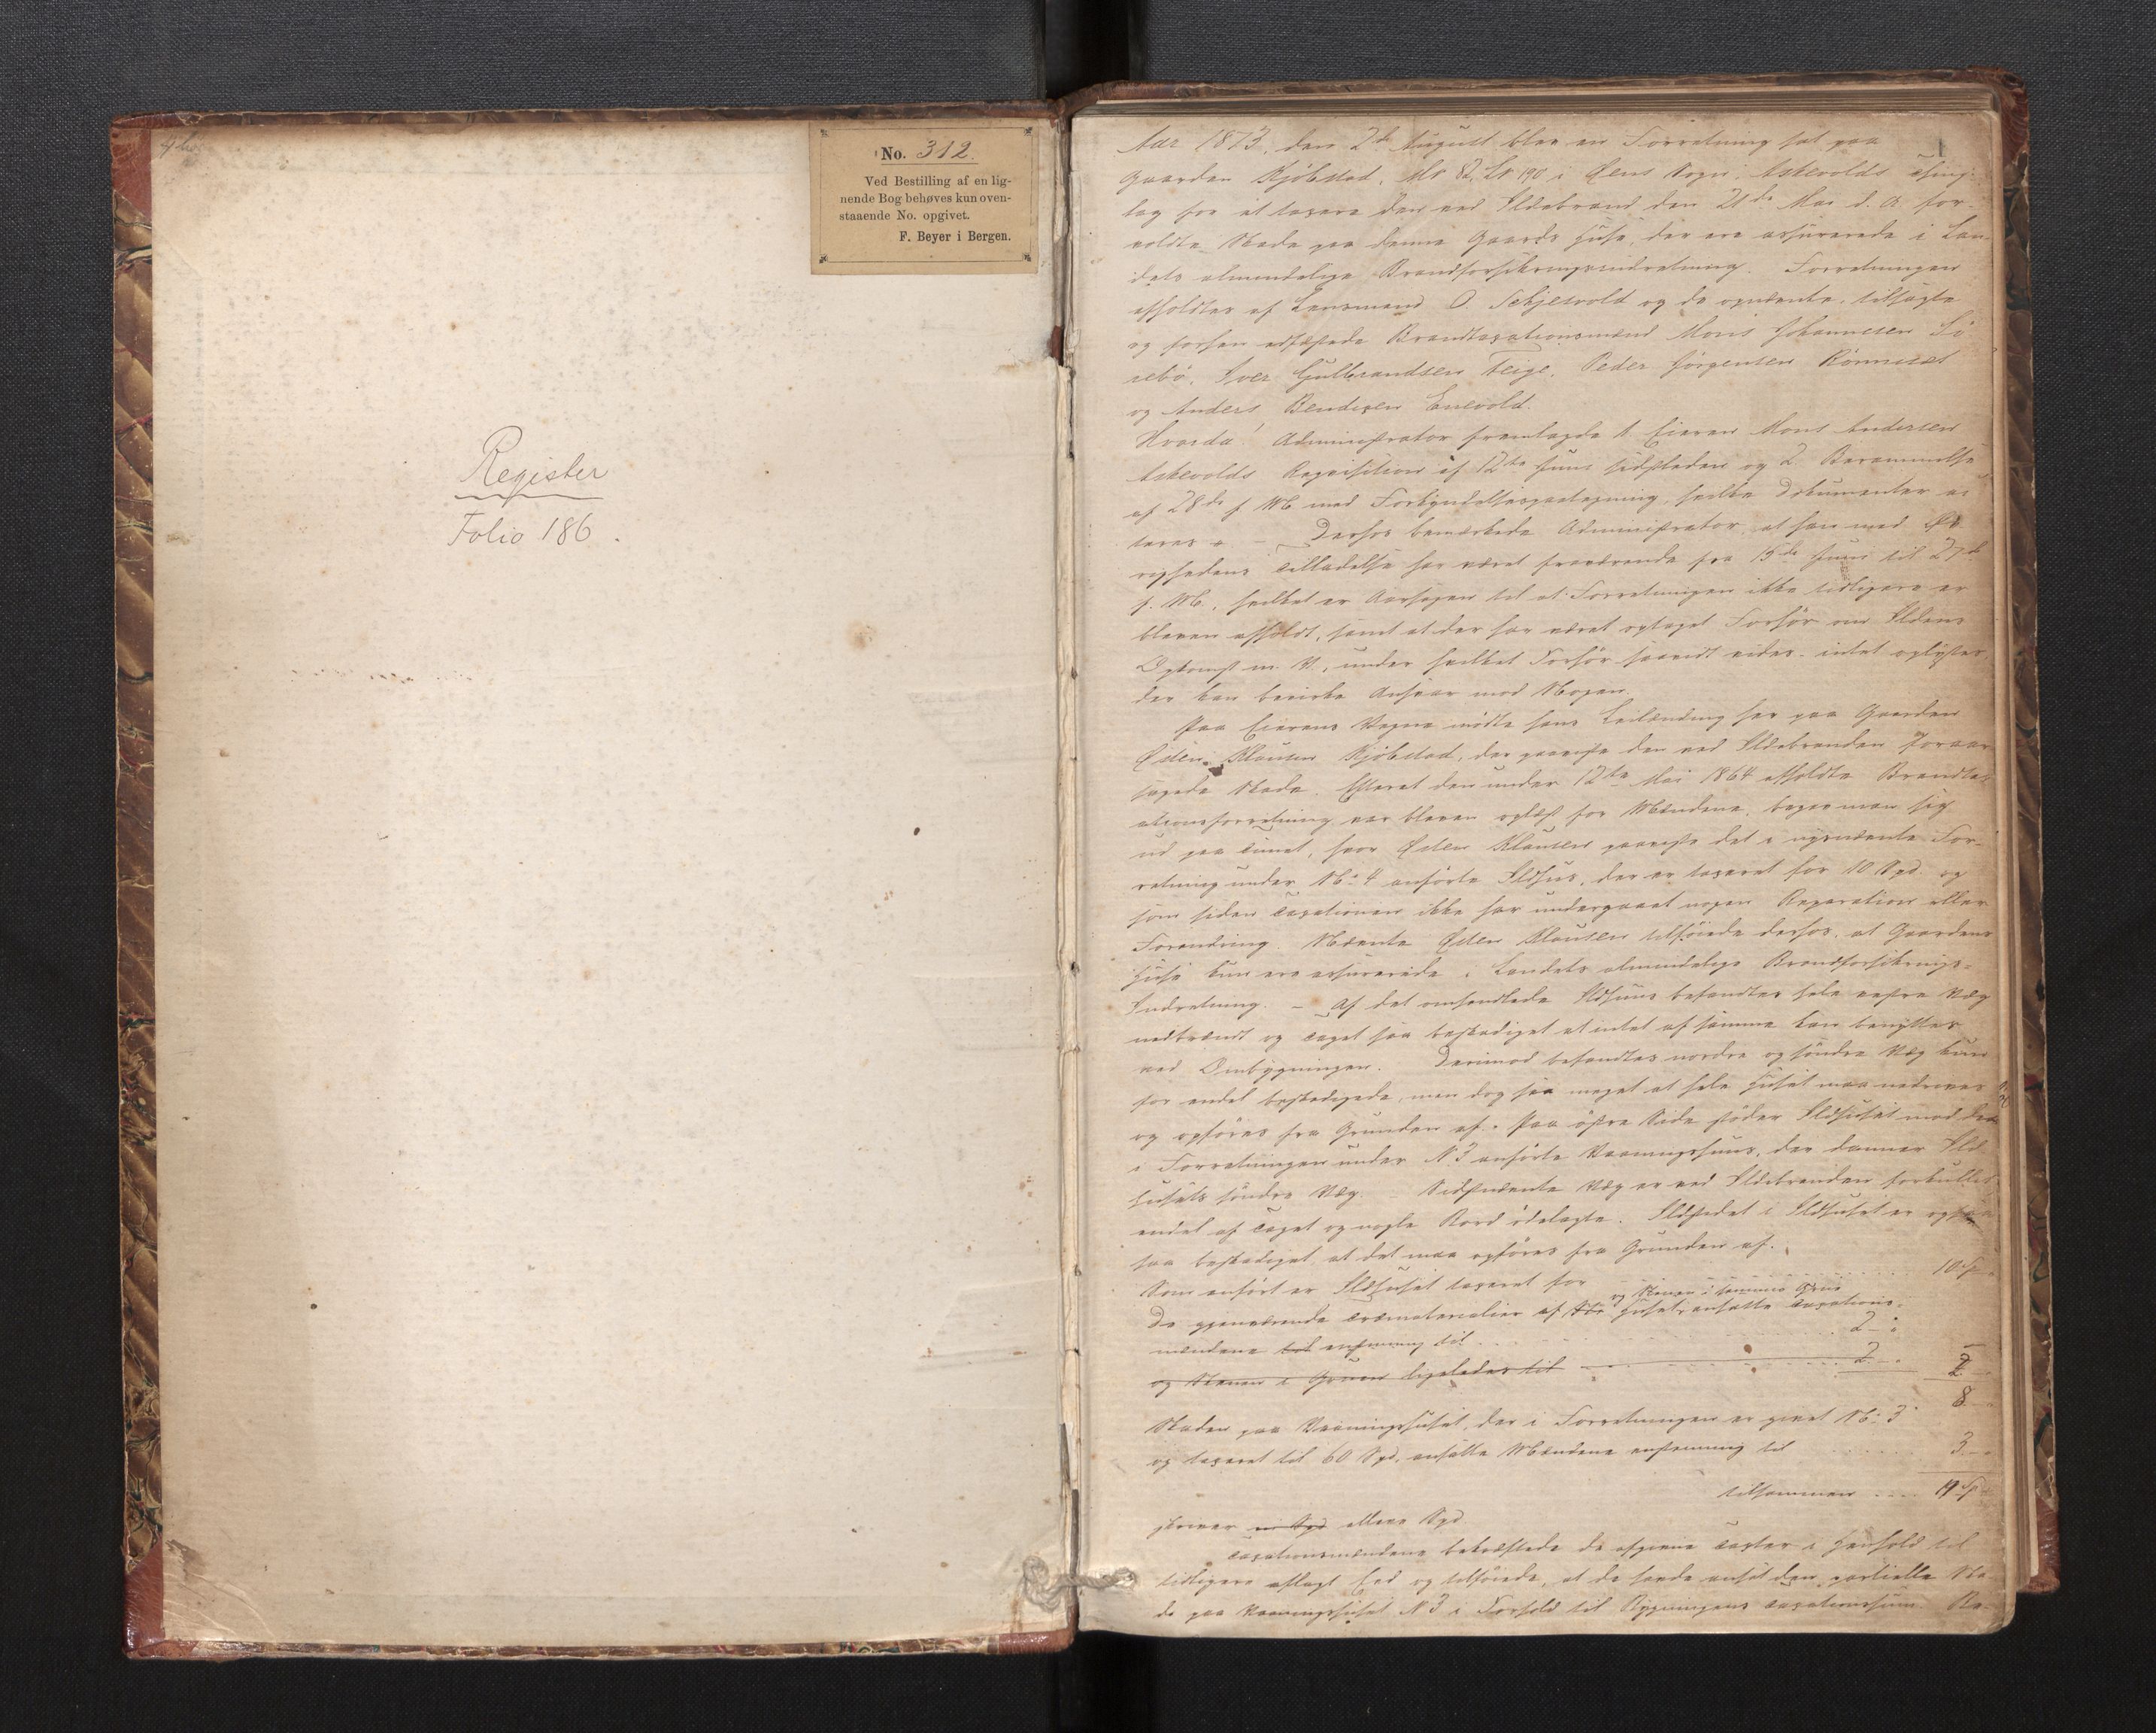 No. 312.
Ved Bestilling af en lig-
nende Bog behøves kun oven-
staaende No. opgivet.
F. Beyer i Bergen.
Register
Folio 186.
1
Aar 1873, den 2de August blev en Forretning sat paa
Gaarden Kjöbstad, Mr 82, Lr 190 i Sogn, Askevolds Thing-
lag for at taxere den ved Ildebrand den 21de Mai d. A. for-
voldte Skade paa denne Gaards Huse, der ere assurerede i Lan-
dets almindelige Brandforsikringsindretning. Forretningen
afholdtes af Lensmand O. Schjelvold og de opnævnte, tilsagte
og forhen edfæstede Brandtaxationsmænd Mons Johannesen
Iver Gulbrandsen Teige, Peder Jörgensen Rönneset
og Anders Bendixen Enevold.
Hvorda! Administrator fremlagde 1 Eieren Mons Andersen
Askevolds Reqvisition af 12te Juni sidstleden og 2 Berammelse
af 28de f. M. med Forkyndelsespaategning, hvilke Dokumenter ac-
teres. – Derhos bemærkede Administrator, at han med Øv-
righedens Tilladelse har været fraværende fra 15de Juni til 27de
f. M., hvilket er Aarsagen til at Forretningen ikke tidligere er
bleven afholdt, samt at der har været optaget Forhör om Ildens
Opkomst m. V., under hvilket Forhör saavidt vides intet oplystes,
der kan bevirke Ansvar mod Nogen.
Paa Eierens Vegne mödte hans Leilænding her paa Gaarden
Østen Klausen Kjöbstad, der paaviste den ved Ildebranden foraar-
sagede Skade. Efterat den under 12te Mai 1864 afholdte Brandtax-
ationsforretning var bleven oplæst for Mændene, begav man sig
ud paa Tunet, hvor Østen Klausen paaviste det i nysnævnte For-
retning under No 4 anförte Ildhus, der er taxeret for 10 Spd. og
som siden Taxationen ikke har undergaaet nogen Reparation eller
Forandring. Nævnte Østen Klausen tilföiede derhos, at Gaardens
Huse kun ere assurerede i Landets almindelige Brandforsikrings-
Indretning. – Af det omhandlede Ildhuus befandtes hele vestre Væg
nedbrændt og Taget saa beskadiget at intet af samme kan benyttes
ved Ombygningen. Derimod befandtes nordre og söndre Væg kun
for endel beskadigede, men dog saa meget at hele Huset maa nedrives
og opföres fra Grunden af. Paa östre Side stöder Ildhuset mod det
i Forretningen under N 3 anförte Vaaningshuus, der danner Ild-
husets söndre Væg. Sidstnævnte Væg er ved Ildebranden forkullet,
endel af Taget og nogle Bord ödelagte. Ildstedet i Ildhuset er ogsaa
saa beskadiget at det maa opföres fra Grunden af.
Som anfört er Ildhuset taxeret for 10 Sp
og Stenen i samme Grue
De gjenværende Træmaterialier af Huset ansatte Taxations-
mændene til 2 –
og Stenen i Gruen ligeledes til 2 – 2
8
Skaden paa Vaaningshuset, der i Forretningen er givet No 3
og taxeret til 60 Spd, ansatte Mændene til 3 –
tilsammen 11 Sp
skriver elleve Spd
Taxationsmændene bekræftede de afgivne Taxter i Henhold til
tidligere aflagt Eed og tilföiede, at de havde ansat den partielle Ska-
de paa Vaaningshuset N 3 i Forhold til Bygningens Taxationssum.